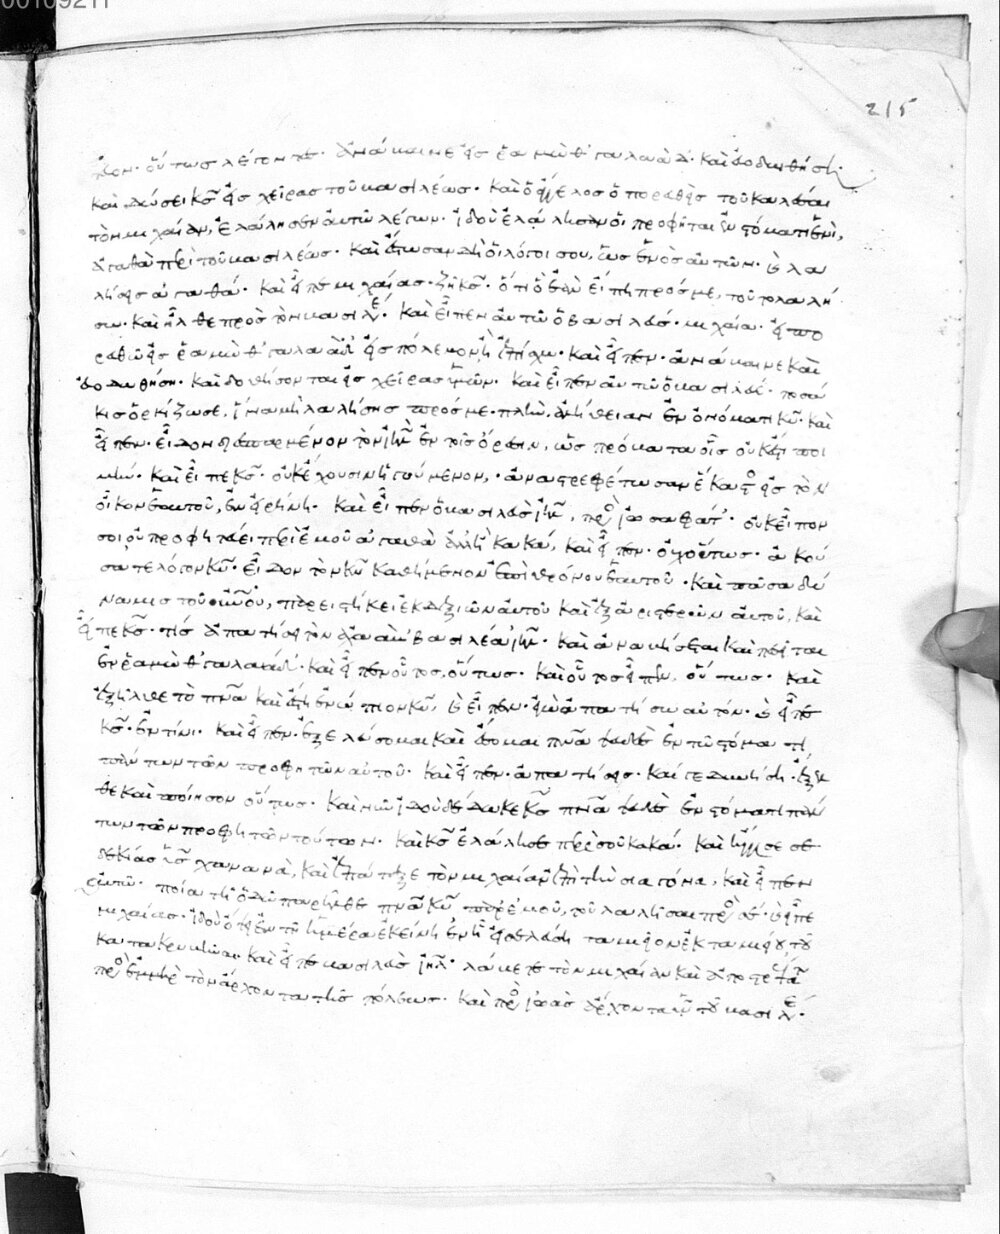 00109211
215
λον· οὕτως λέγοντες· ἀνάβαινε εἰς ῥαμὼθ γαλαὰδ· καὶ εὐοδωθήσῃ·
καὶ δώσει κς εἰς χεῖρας τοῦ βασιλέως· καὶ ὁ ἄγγελος ὁ πορευθεὶς τοῦ καλέσαι
τὸν μιχαίαν, ἐλάλησεν αὐτῷ λέγων· ἰδοὺ ἐλάλησαν οἱ προφῆται ἐν στόματι ἑνὶ,
ἀγαθὰ περὶ τοῦ βασιλέως· καὶ ἔστωσαν δὴ οἱ λόγοι σου, ὡς ἑνὸς αὐτῶν· καὶ λαλήσεις
ἀγαθά· καὶ εἶπε μιχαίας· ζῇ κς· ὅτι ὃ ἐὰν εἴπῃ πρός με, τοῦτο λαλή
σω· καὶ ἦλθε πρὸς τὸν βασιλέ· καὶ εἶπεν αὐτῷ ὁ βασιλεύς· μιχαία· εἰ πο
ρευθῶ εἰς ῥαμὼθ γαλαὰδ εἰς πόλεμον, ἢ ἐπίσχω· καὶ εἶπεν· ἀνάβαινε καὶ
εὐοδωθήσῃ· καὶ δοθήσονται εἰς χεῖρας ὑμῶν· καὶ εἶπεν αὐτῷ ὁ βασιλεύς· ποσά
κις ὁρκίζω σε, ἵνα μὴ λαλήσῃς πρός με· πλὴν ἀλήθειαν ἐν ὀνόματι κυ· καὶ
εἶπεν· εἶδον διεσπαρμένον τὸν ιηλ ἐν τοῖς ὄρεσιν, ὡς πρόβατα οἷς οὐκ ἔστι ποι
μήν· καὶ εἶπε κς· οὐκ ἔχουσιν ἡγούμενον, ἀναστρεφέτωσαν ἕκαστος εἰς τὸν
οἶκον ἑαυτοῦ, ἐν εἰρήνῃ· καὶ εἶπεν ὁ βασιλεὺς ιηλ, πρὸς ἰωσαφάτ· οὐκ εἶπόν
σοι οὐ προφητεύει περὶ ἐμοῦ ἀγαθὰ ἀλλ' ἢ κακά, καὶ εἶπεν· οὐχ οὕτως· ἀκού
σατε λόγον κυ· εἶδον τὸν κν καθήμενον ἐπὶ θρόνου ἑαυτοῦ· καὶ πᾶσα δύ
ναμις τοῦ οὐνοῦ, παρειστήκει ἐκ δεξιῶν αὐτοῦ καὶ ἐξ ἀριστερῶν αὐτοῦ, καὶ
εἶπε κς· τίς ἀπατήσει τὸν ἀχαὰβ βασιλέα ιηλ· καὶ ἀναβήσεται καὶ πεσεῖται
ἐν ῥαμὼθ γαλαάδ· καὶ εἶπεν οὗτος, οὕτως· καὶ οὗτος εἶπεν, οὕτως· καὶ
ἐξῆλθε τὸ πνα καὶ ἔστη ἐνώπιον κυ, καὶ εἶπεν· ἐγὼ ἀπατήσω αὐτόν· καὶ εἶπε
κς· ἐν τίνι· καὶ εἶπεν· ἐξελεύσομαι καὶ ἔσομαι πνα ψευδὲς ἐν τῷ στόματι
πάντων τῶν προφητῶν αὐτοῦ· καὶ εἶπεν· ἀπατήσεις· καί γε δυνήσῃ· ἔξελ
θε καὶ ποίησον οὕτως· καὶ νῦν ἰδοὺ δέδωκε κς πνα ψευδὲς ἐν στόματι πάν
των τῶν προφητῶν τούτων· καὶ κς ἐλάλησε περὶ σοῦ κακά· καὶ ἤγγισε σε
δεκίας υἱὸς χαναανὰ, καὶ ἐπάταξε τὸν μιχαίαν ἐπὶ τὴν σιαγόνα, καὶ εἶπεν
αὐτῷ· ποίᾳ τῇ ὁδῷ παρῆλθε πνα κυ παρ' ἐμοῦ, τοῦ λαλῆσαι πρὸς σέ· καὶ εἶπε
μιχαίας· ἰδοὺ ὄψει ἐν τῇ ἡμέρᾳ ἐκείνῃ ἐν ᾗ εἰσελεύσῃ ταμιεῖον ἐκ ταμιείου τοῦ
κατακρυβῆναι· καὶ εἶπε βασιλεὺς ιηλ· λάβετε τὸν μιχαίαν καὶ ἀποστρέψατε
πρὸς ἐμμὴρ τὸν ἄρχοντα τῆς πόλεως· καὶ πρὸς ἰωὰς ἄρχοντα υἱὸν τοῦ βασιλέ·